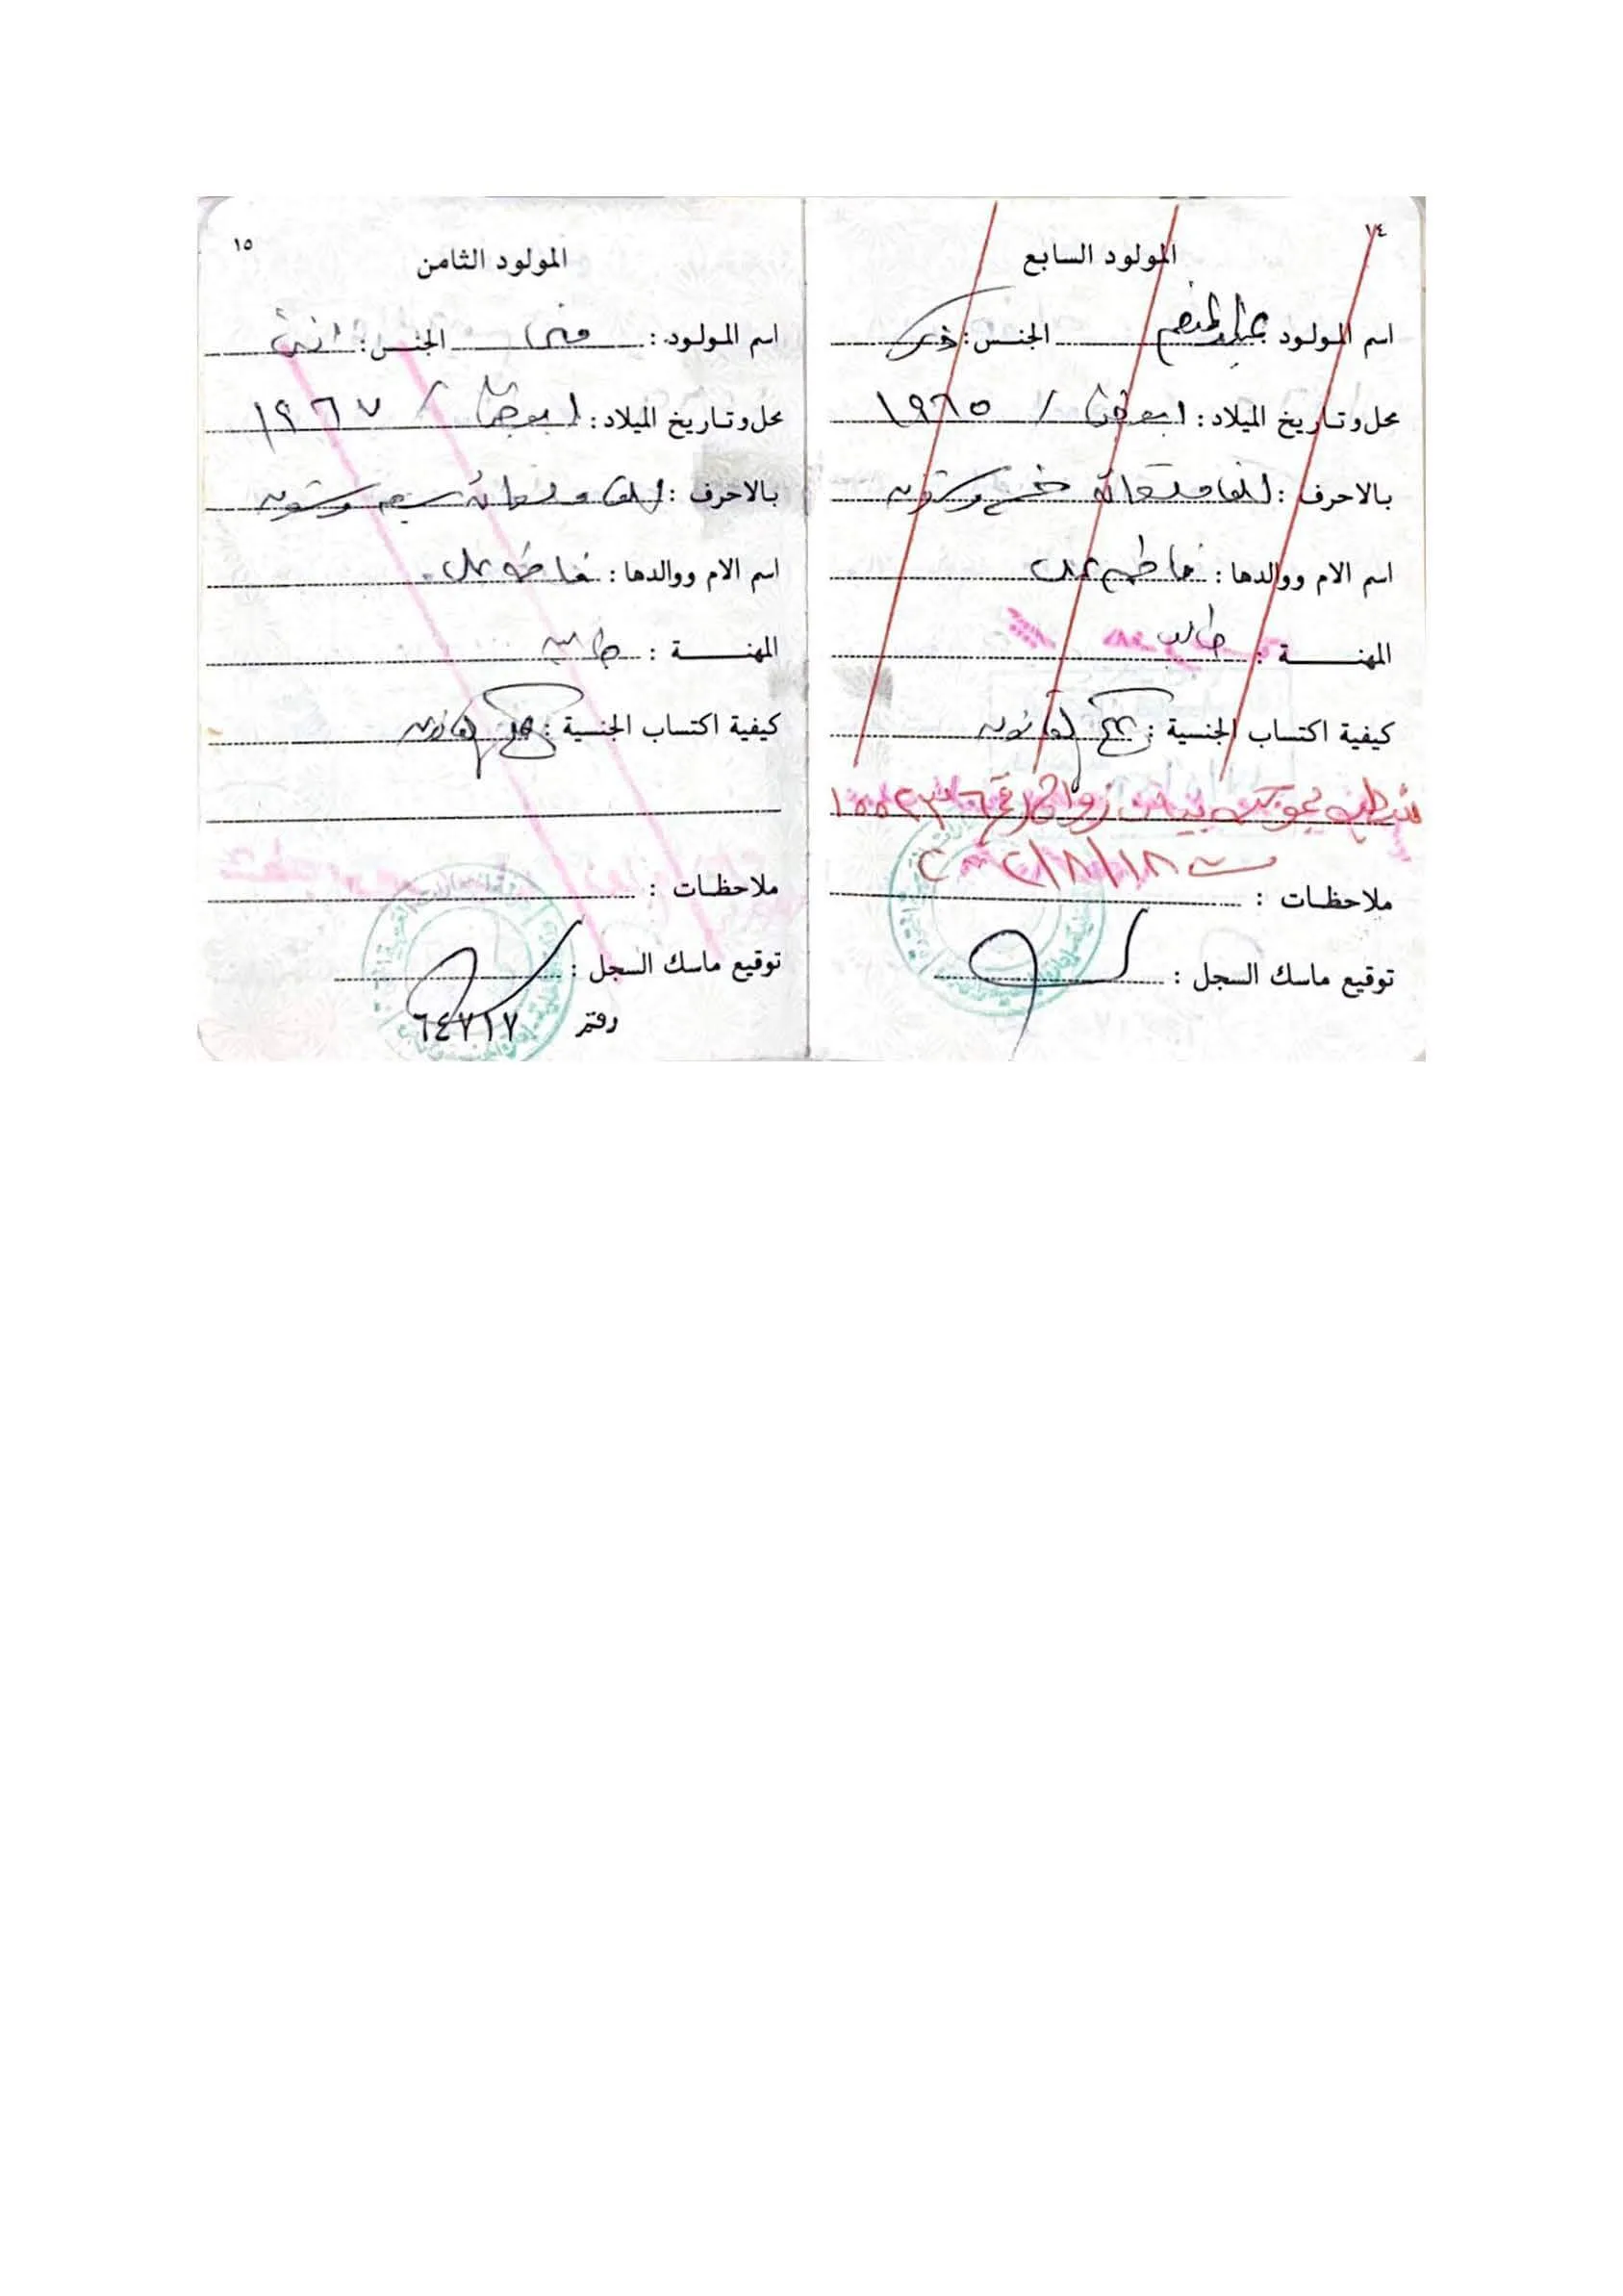 ١٤
المولود السابع
اسم المولود عبد المنعم الجنس : ذكر
محل وتاريخ الميلاد : ابوظبي / ١٩٦٥
بالاحرف : الف وتسعمائة خمس وستون
اسم الام ووالدها : فاطمه محمد
المهنـة : طالب
كيفية اكتساب الجنسية : بحكم القانون
شطب بموجب بيان زواج رقم
١٨/٨/٢٠٠٢
ملاحظات :
توقيع ماسك السجل :
١٥
المولود الثامن
اسم المولود : منى الجنس : انثى
محل وتاريخ الميلاد : ابوظبي / ١٩٦٧
بالاحرف : الف وتسعمائة سبع وستون
اسم الام ووالدها : فاطمه محمد
المهنـة : طالبه
كيفية اكتساب الجنسية : بحكم القانون
ملاحظات :
توقيع ماسك السجل :
رقم ٦٤٧١٧